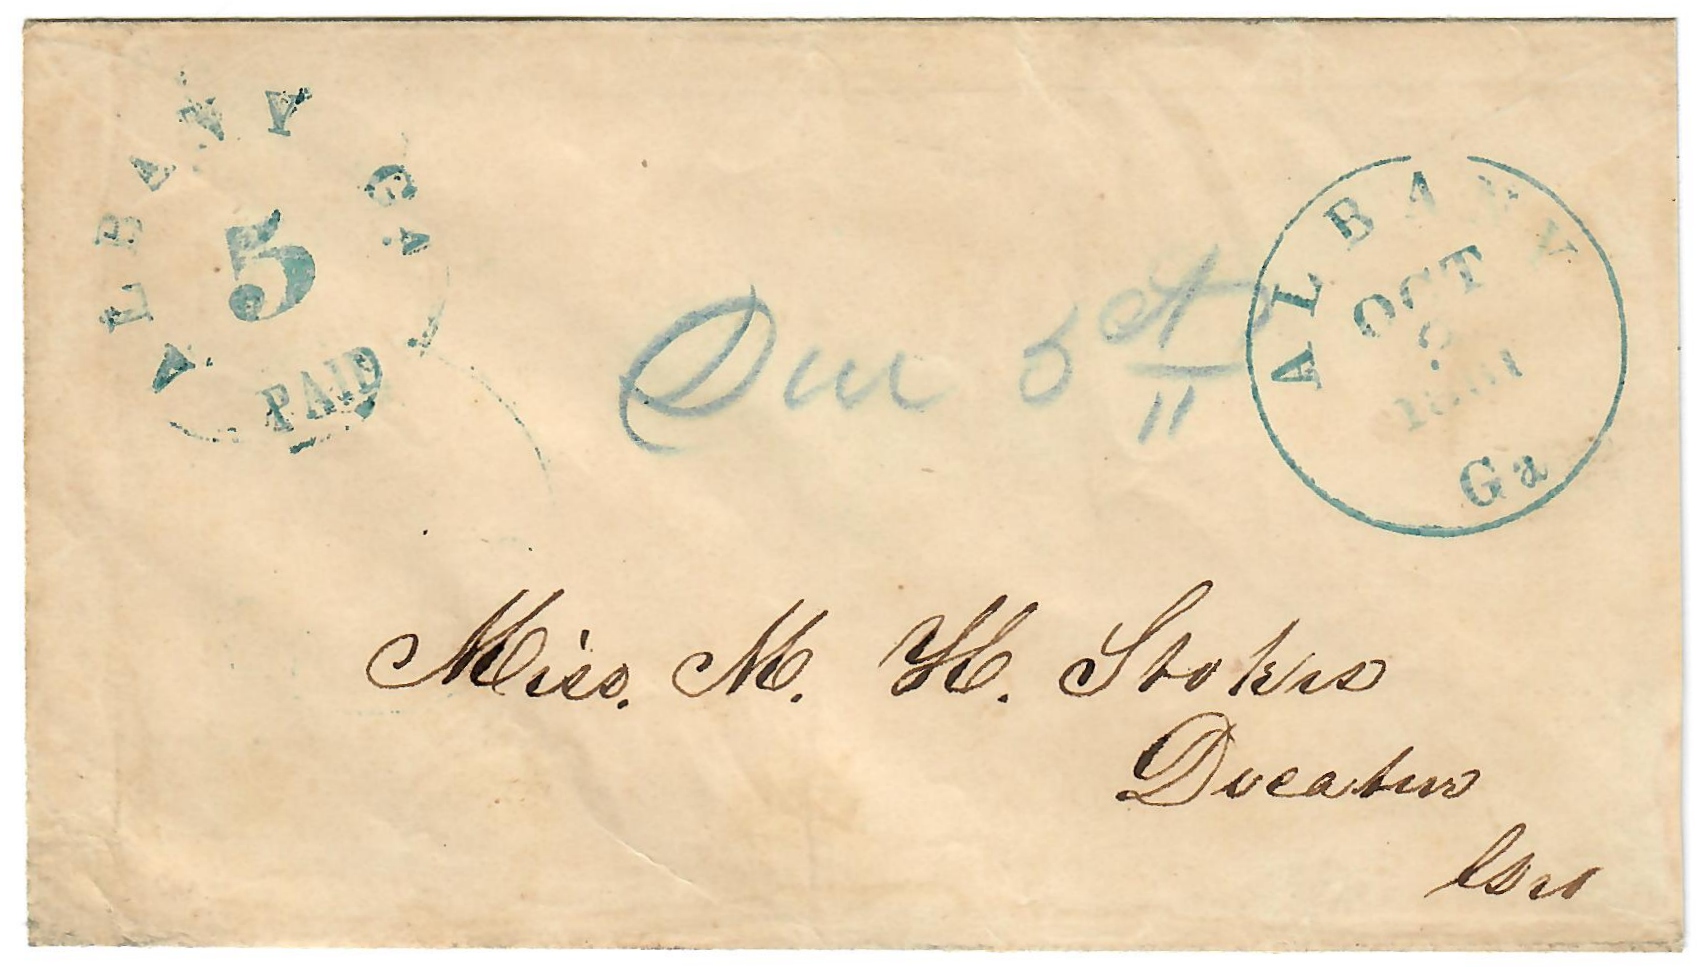 ALBANY GA.
5
PAID
ALBANY
OCT
1861
Ga
Due 5 cts
Miss. M. H. Stokes
Decatur
Geo